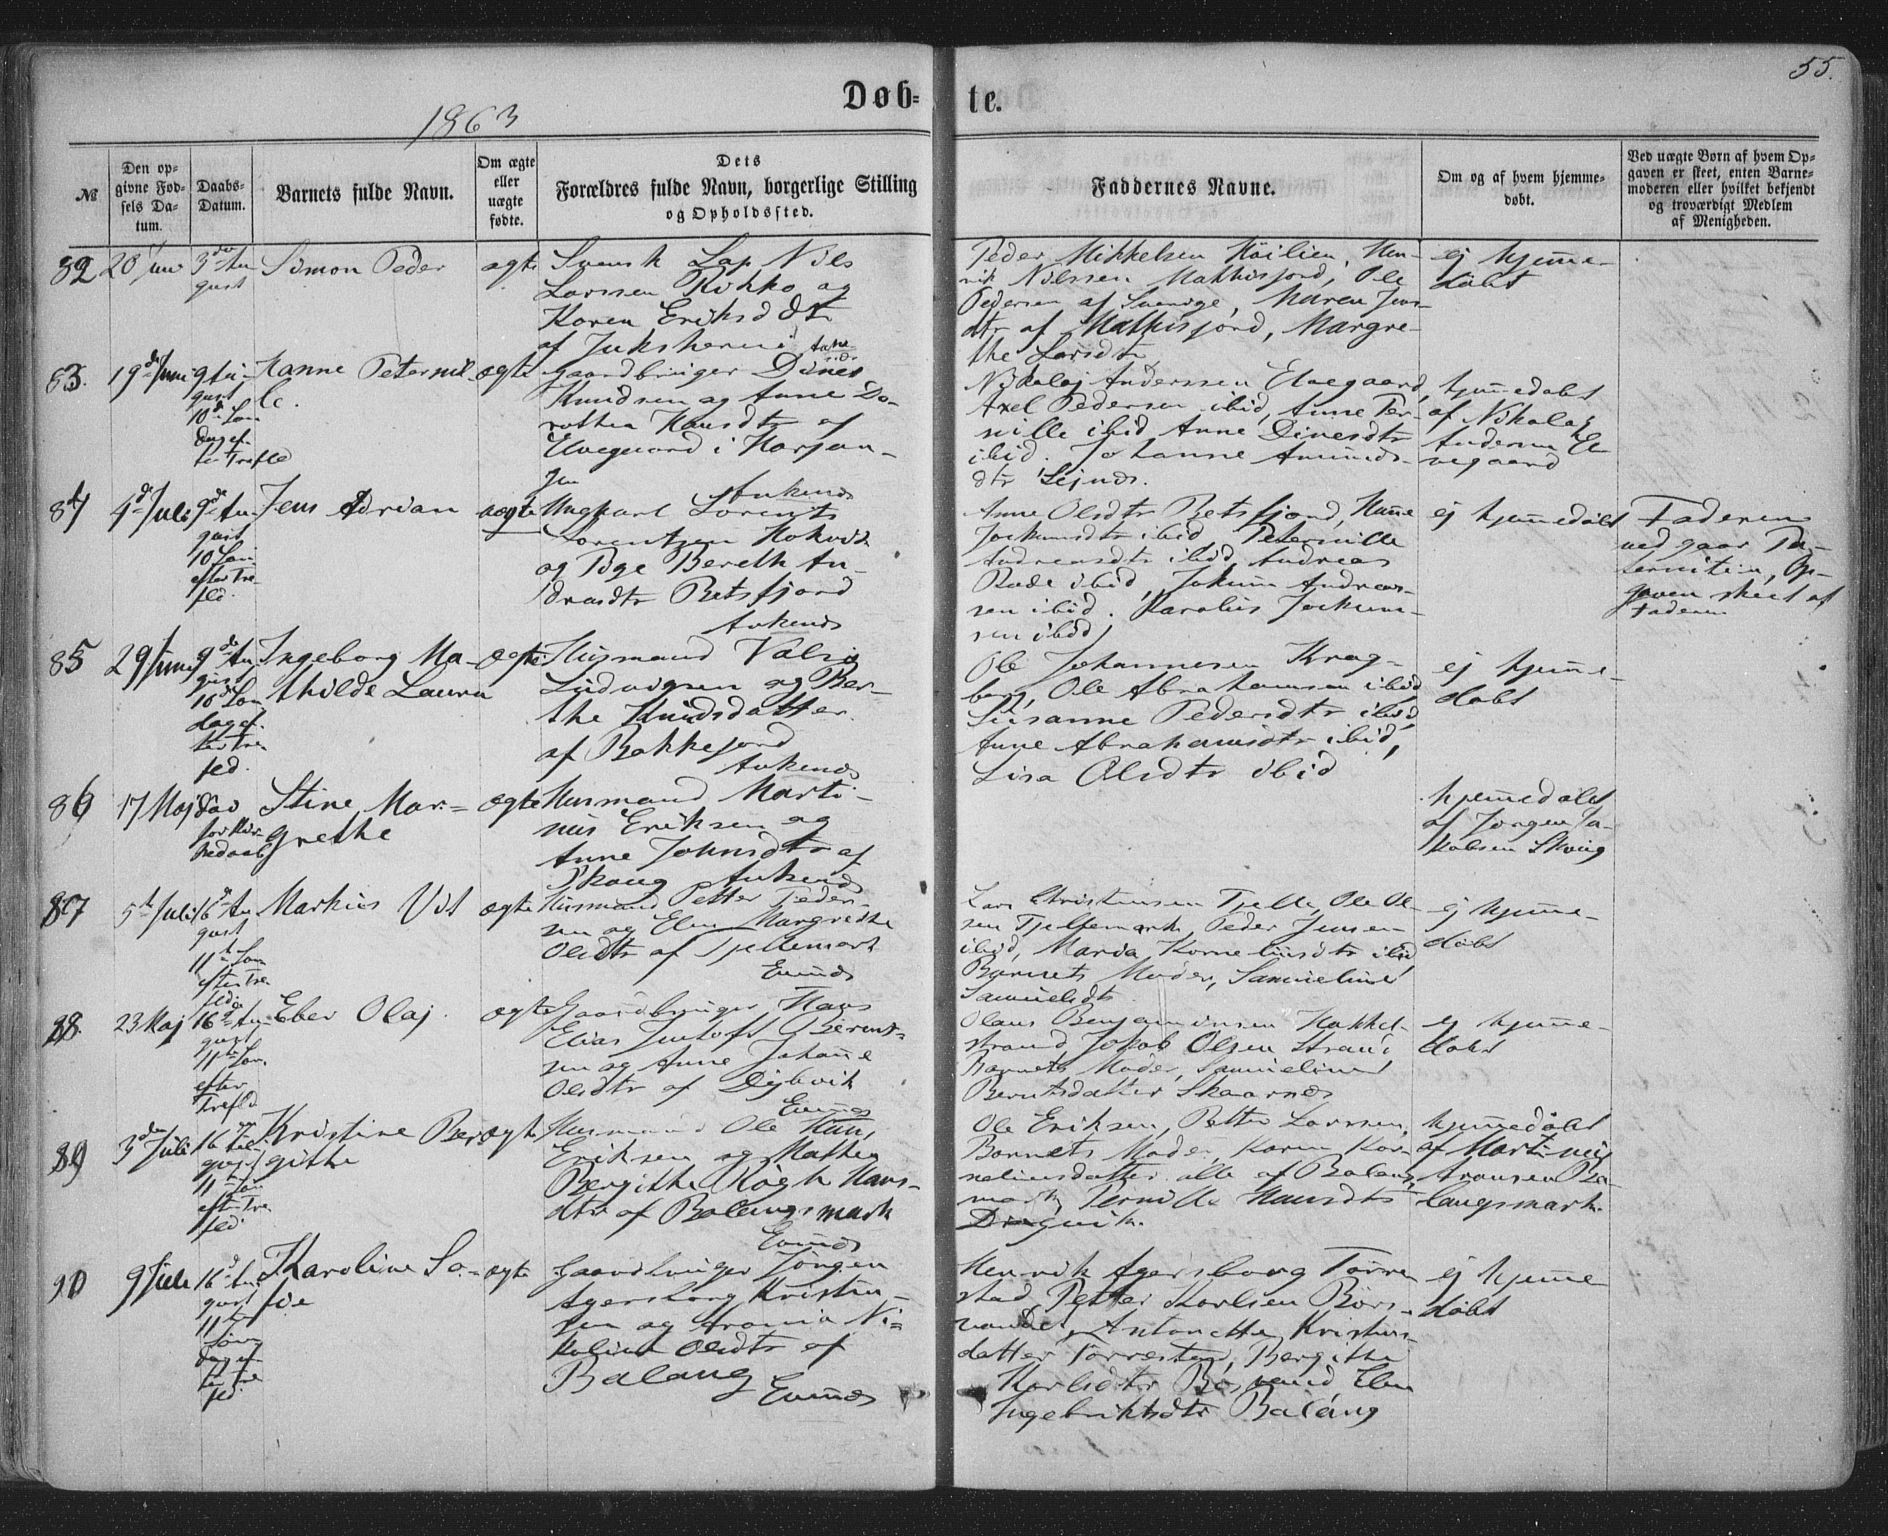 55.
Døb=
te.
1863
№
Den op=
givne Fød=
sels Da=
tum.
Daabs=
Datum.
Barnets fulde Navn.
Om ægte
eller
uægte
fødte.
Dets
Forældres fulde Navn, borgerlige Stilling
og Opholdssted.
Faddernes Navne.
Om og af hvem hjemme=
døbt.
Ved uægte Børn af hvem Op=
gaven er skeet, enten Barne=
moderen eller hvilket bekjendt
og troværdigt Medlem
af Menigheden.
82
20 Juni
3die Au
gust
Simon Peder
ægte
Svensk Lap Nils
Larssen Kikko og
Karen Eriksd dtr
af
Peder Mikkelsen Høilien, Hen-
rik Nilssen Mathisfjord, Ole
Pedersen af Sverrige, Maren Jens
dtr af Mathisfjord, Margre-
the Larsdtr
ej hjemme-
døbt
83.
19de Juni
9 Au
gust
10de Søn
dag ef
ter Trefld
Hanne Peternil
le.
ægte
Gaardbruger Dines
Knudsen og Anne Do-
rothea Hansdtr af
Elvegaard i Herjan-
gen
Ankenes
Nikolaj Anderssen Elvegaard,
Axel Pedersen ibid, Anne Per-
nille ibid Anne Dinesdtr
ibid. Johanne Amunds-
dtr
hjemmedøbt
af Nikolaj
Andersen El
vegaard
84
4de Juli
9de Au
gust
10 Søn
efter Tre
fld.
Jens Adrian
uægte
Ungkarl Lorents
Lorentzen Hokvik
og Pige Bereth An-
dreasdtr Betsfjord
Ankenes
Anne Olsdtr Betsfjord, Hanne
Jockumsdtr ibid, Peternille
Andreasdtr ibid Andreas
ibid, Jokum Andreas-
sen ibid. Karolius Jockum-
sen ibid
ej hjemmedøbt
Faderen
ved gaar Pa-
terniteten, Op-
gaven skeet af
Faderen
85
29 Juni
9de Au
gust
10de Søn
dag ef
ter Tre
fld.
Ingeborg Ma-
thilde Laura
ægte
Husmand
Ludvigsen og Ber-
the Knudsdatter
af Bakkejord
Ankenes
Ole Johannesen Krag-
borg, Ole Abrahamsen ibid
Susanne Pedersdtr ibid
Anne Abrahamsdtr ibid,
Lisa Olsdtr ibid
ej hjemme-
døbt
86
17 Maj
død
før Kir
kedaab
Stine Mar-
grethe
ægte
Husmand Marti-
nus Eriksen og
Anne Johnsdtr af
Ankenes
hjemmedøbt
af Jørgen Ja-
kobsen
87
5te Juli
16de Au
gust
11te Søn
efter Tre
fld
Markus Vit
ægte
Husmand Petter Peder-
sen og Elen Margrethe
Olsdtr af Tjellemark
Evenes
Lars Christensen Tjelle, Ole Ol-
sen Tjellemark, Peder Jensen
ibid, Maria Korneliusdtr ibid
Barnets Moder, Samueline
Samuelsdtr
ej hjemme-
døbt
88.
23 Maj
16de Au
gust
11te Søn
efter
Trefld
Eber Olaj.
ægte
Gaardbruger Hans
Elias Berent-
sen og Anne Johanne
Olsdtr af Dybvik
Evenes
Olaus Benjaminsen
strand Jakob Olsen Strand
Barnets Moder, Samueline
Berntsdatter
ej hjemme-
døbt
89
3die Juli
16 Au
gust
11te Søn
efter Tre
fld.
Kristine Ber
githe
ægte
Husmand Ole
Eriksen og Mathea
Bergithe Høgh Hans-
dtr af Balangsmark
Evenes
Ole Eriksen, Petter Larssen,
Barnets Moder, Karen Kor-
neliusdatter alle af Balangs
mark, Pernille Hansdtr
hjemmedøbt
af Martinus
Aronsen Ba-
langsmark.
90
9 Juli
16de Au
gust
11te
Søn
dag ef
ter Tre
fld.
Karoline So-
fie
ægte
Gaardbruger Jørgen
Agersborg Kristen-
sen og Aronia Ni-
koline Olsdtr af
Balang
Evenes
Henrik Agersborg Tørre
stad Petter Karlsen
Antonette Kristens-
datter Tørrestad, Bergithe
Karlsdtr Elen
Ingebriktsdtr Balang
ej hjemme
døbt